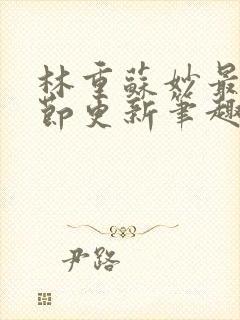 林重蘇妙最
節更新筆趣
尹路